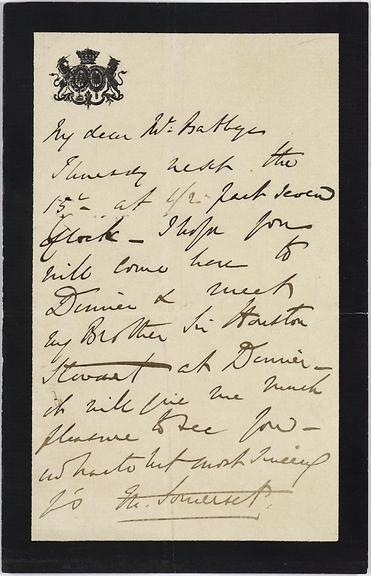 My dear Mr. Babbage
Thursday next the
15th at 1/2 past seven
O'Clock – I hope you
will come here to
Dinner & meet
my Brother Sir Houston
Stewart at Dinner –
it will give me much
pleasure to see you –
in haste but most sincerely
yrs M. Somerset.